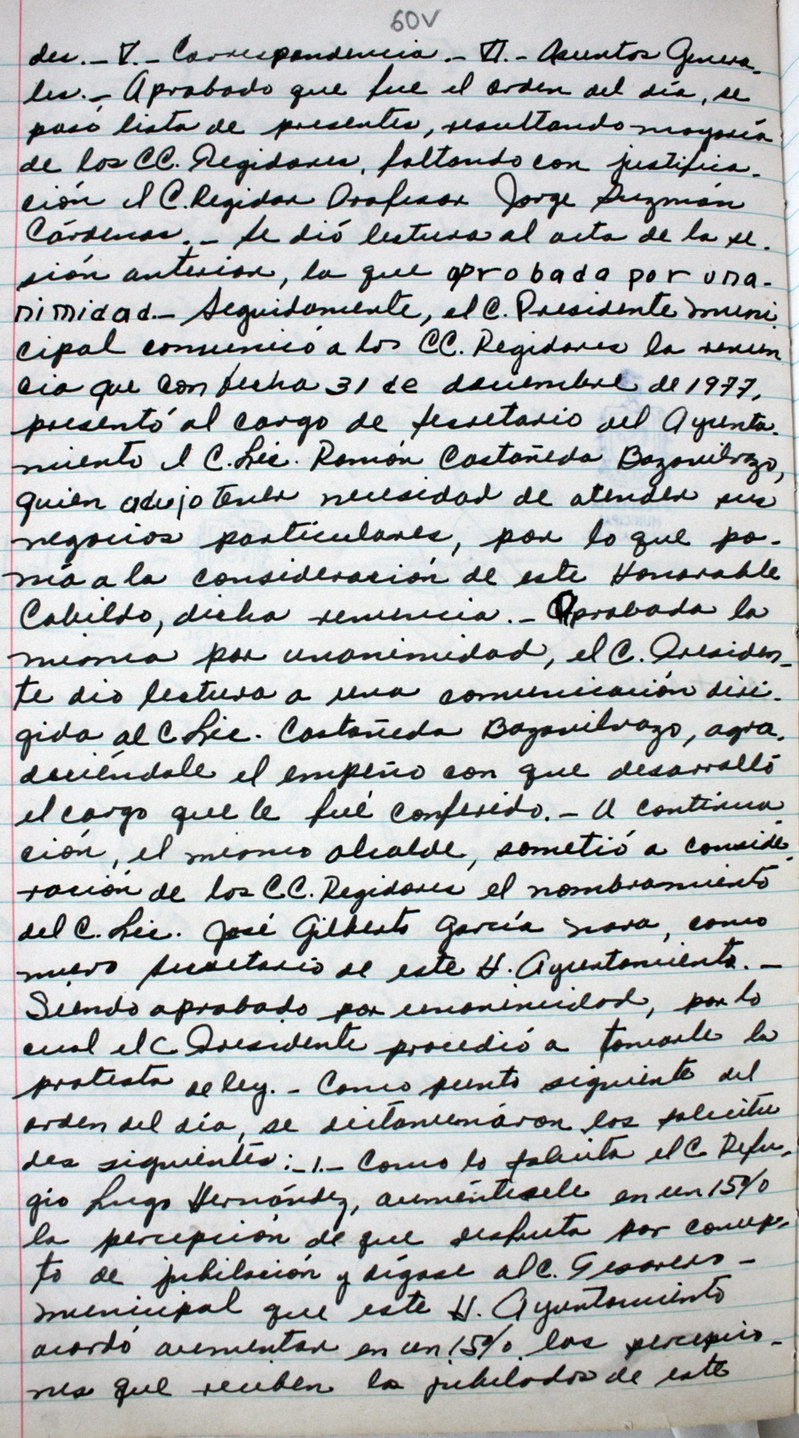 60V
des.- V.- Correspondencia.- VI.- Asuntos Genera-
les.- Aprobado que fue el orden del día, se
pasó lista de presentes, resultando mayoría
de los CC. Regidores, faltando con justifica-
ción el C. Regidor Profesor Jorge Guzmán
Cárdenas.- Se dió lectura al acta de la se-
sión anterior, la que aprobada por una-
nimidad.- Seguidamente, el C. Presidente Muni
cipal comunicó a los CC. Regidores la renun
cia que con fecha 31 de diciembre de 1977,
presentó al cargo de Secretario del Ayunta-
miento el C. Lic. Ramón Castañeda Bazavilvazo,
quien adujo tener necesidad de atender sus
negocios particulares, por lo que po-
nía a la consideración de este Honorable
Cabildo, dicha renuncia.- Aprobada la
misma por unanimidad, el C. Presiden-
te dio lectura a una comunicación diri-
gida al C. Lic. Castañeda Bazavilvazo, agra-
deciéndole el empeño con que desarrolló
el cargo que le fué conferido.- A continua
ción, el mismo alcalde, sometió a conside-
ración de los CC. Regidores el nombramiento
del C. Lic. José Gilberto García Nava, como
nuevo Secretario de este H. Ayuntamiento.-
Siendo aprobado por unanimidad, por lo
cual el C Presidente procedió a tomarle la
protesta de ley.- Como punto siguiente del
orden del día, se dictaminaron las solicitu
des siguientes:-1.- Como lo solicita el C. Refu-
gio Lugo Hernández, auméntesele en un 15%
la percepción de que disfruta por concep-
to de jubilación y dígase al C. Tesorero-
municipal que este H. Ayuntamiento
acordó aumentar en un 15% las percepcio-
nes que reciben los jubilados de este